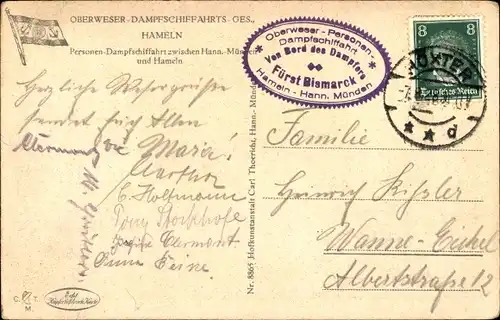 OBERWESER-DAMPFSCHIFFAHRTS-GES.,
HAMELN
Personen-Dampfschiffahrt zwischen Hann.-Münden
und Hameln
Oberweser-Personen-
Dampfschiffahrt
Von Bord des Dampfers
Fürst Bismarck
Hameln - Hann. Münden
8 8
Deutsches Reich
HÖXTER
* * d
Herzliche Wesergrüße
sendet Euch Allen
Maria!
Martha
C. Holtmann
Tony
Clermont
Anna Feine
Nr. 8865 Hofkunstanstalt Carl Thoericht, Hann.-Münden
Familie
Heinrich Kißler
Wanne-Eickel
Albertstraße 12
C. T.
M.